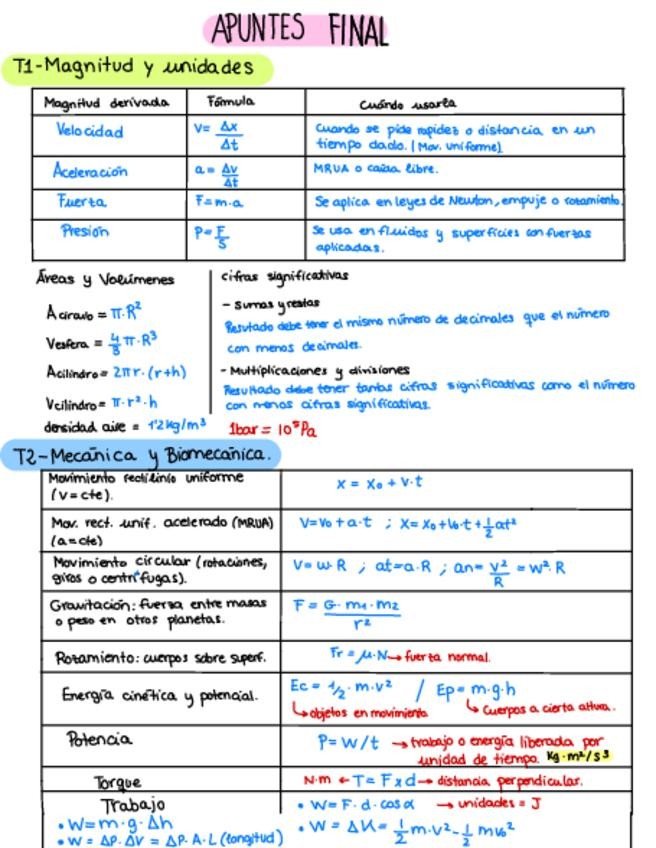 APUNTES FINAL
T1-Magnitud y unidades
Magnitud derivada Fórmula Cuándo usarla
Velocidad V= Δx/Δt Cuando se pide rapidez o distancia en un
tiempo dado. (Mov. uniforme)
Aceleración a= Δv/Δt MRUA o caída libre.
Fuerza F=m·a Se aplica en leyes de Newton, empuje o rozamiento.
Presión P=F/S Se usa en fluidos y superficies con fuerzas
aplicadas.
Áreas y Volúmenes
A círculo = π·R²
Vesfera = 4/3 π·R³
Acilindro = 2πr·(r+h)
Vcilindro = π·r²·h
densidad aire = 1'2kg/m³
cifras significativas
- Sumas y restas
Resutado debe tener el mismo número de decimales que el número
con menos decimales.
- Multiplicaciones y divisiones
Resultado debe tener tantas cifras significativas como el número
con menos cifras significativas.
1bar = 10⁵Pa
T2-Mecánica y Biomecánica.
Movimiento rectilínio uniforme
(v=cte).
x = x₀ + v·t
Mov. rect. unif. acelerado (MRUA)
(a=cte)
V=V₀+a·t ; X=X₀+V₀·t+½at²
Movimiento circular (rotaciones,
giros o centrífugas).
V=ω·R ; at=α·R ; an= V²/R = ω²·R
Gravitación: fuerza entre masas
o peso en otros planetas.
F = G·m₁·m₂/r²
Rozamiento: cuerpos sobre superf.
Fr = μ·N→fuerza normal.
Energía cinética y potencial.
Ec = 1/2·m·v² / Ep=m·g·h
↳objetos en movimiento ↳Cuerpos a cierta altura.
Potencia
P=W/t →trabajo o energía liberada por
unidad de tiempo. Kg·m²/s³
Torque
N·m ← T=Fxd→ distancia perpendicular.
Trabajo
• W=F·d·cosα → unidades = J
• W=m·g·Δh
• W = ΔP·ΔV = ΔP·A·L (longitud)
• W = ΔK = ½m·v²-½mv₀²